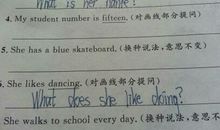 What is her name?
4. My student number is fifteen. (对画线部分提问)
5. She has a blue skateboard. (换种说法,意思不变)
6. She likes dancing. (对画线部分提问)
What does she like doing?
She walks to school every day. (换种说法,意思不